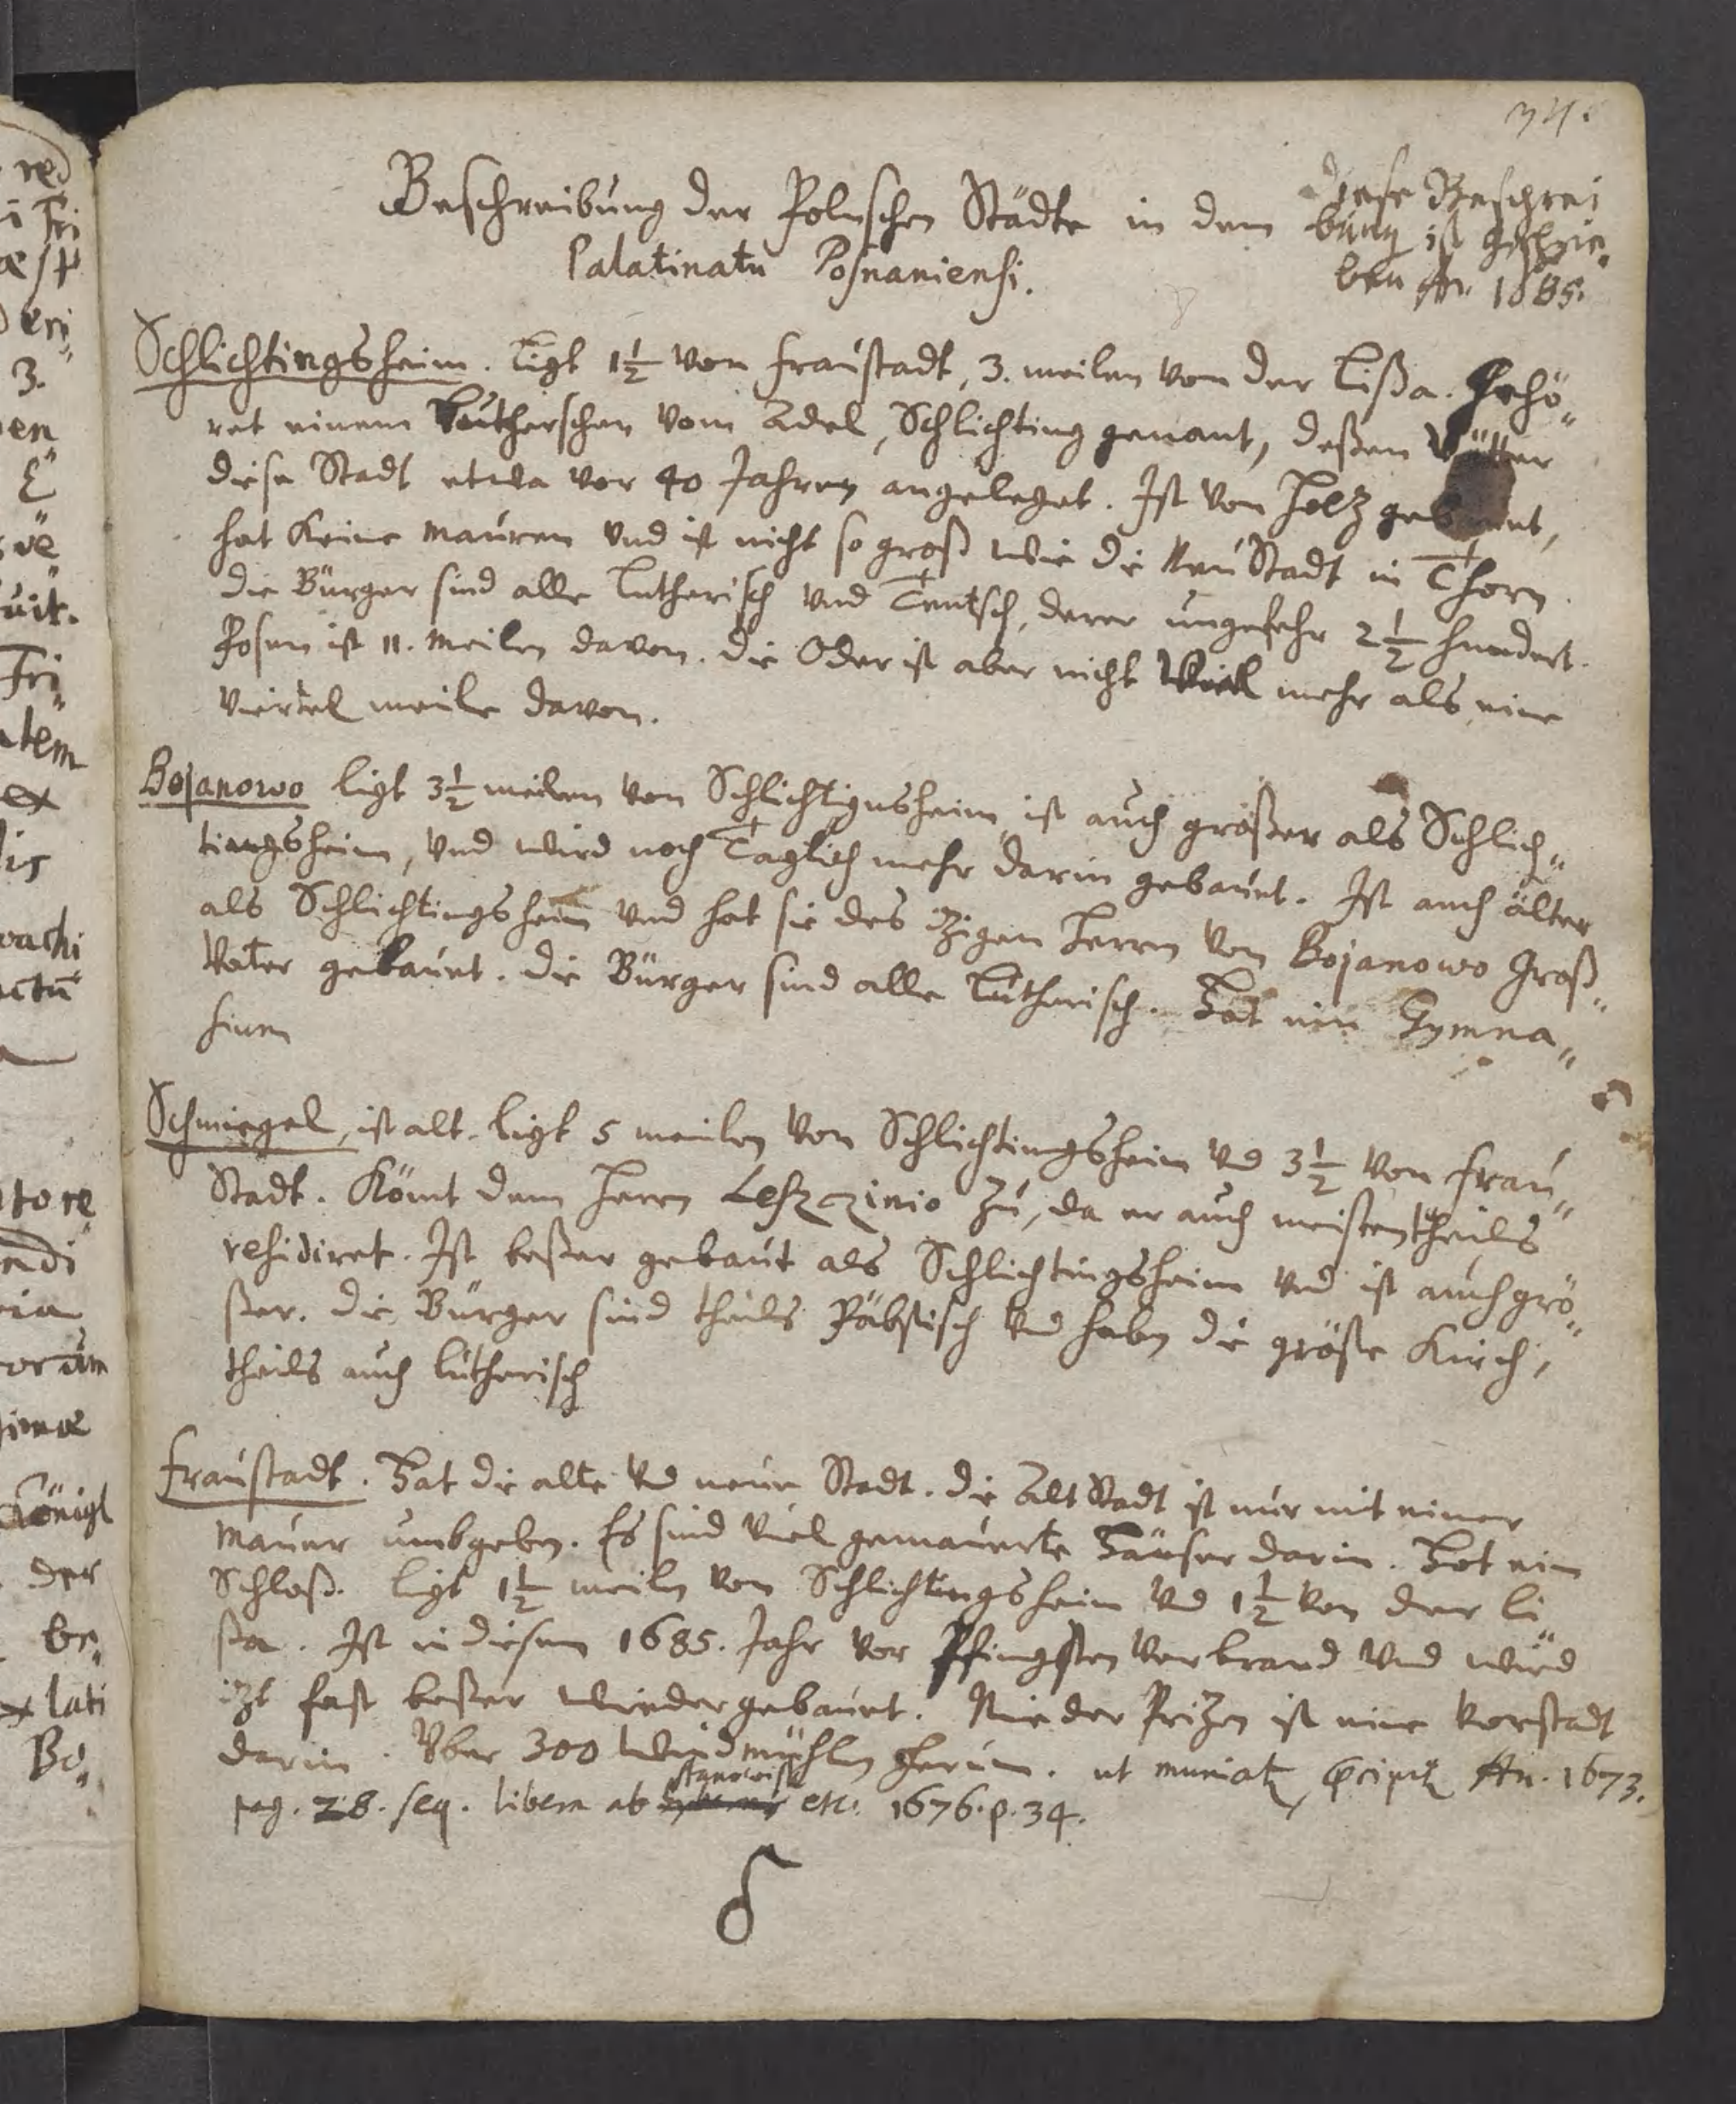 34.
Beschreibung der Polnschen Städte in dem
Palatinatu Posnaniensi.
Diese Beschrei
bung ist geschrie„
ben An. 1685.
Schlichtingsheim. Ligt 1½ von Fraustadt, 3. meilen von der Lißa. Gehö„
ret einem Lutherschen vom Adel, Schlichting genant, deßen Vatter
diese Stadt etwa vor 40 Jahren angeleget. Ist von Holz gebauet,
hat keine mauren und ist nicht so groß wie die NeuStadt in Thorn.
die Bürger sind alle Lutherisch und Teutsch, derer ungefehr 2½ hundert.
Posen ist 11. meilen davon. die Oder ist aber nicht viel mehr als eine
viertel meile davon.
Bojanowo ligt 3½ meilen von Schlichtignsheim ist auch größer als Schlich„
tingsheim, und wird noch Täglich mehr darin gebauet. Ist auch älter
als Schlichtingsheim und hat sie des itzigen Herren von Bojanowo Groß„
Vater gebauet. die Bürger sind alle Lutherisch. Hat ein Gymna„
sium
Schmiegel, ist alt. ligt 5 meilen von Schlichtingsheim und 3½ von Frau„
Stadt. Kömt dem Herrn Leszczinio zu, da er auch meistentheils
residiret. Ist beßer gebaut als Schlichtingsheim und ist auch grö„
ßer. die Bürger sind theils Päbstisch und haben die große Kirch,
theils auch lutherisch
Fraustadt. Hat die alte und neue Stadt. die Alt Stadt ist nur mit einer
mauer umbgeben. Es sind viel gemauerte Häuser darin. Hat ein
Schloß. ligt 1½ meilen von Schlichtingsheim und 1½ von der Li„
ßa. Ist in diesem 1685. Jahr vor Pfingsten verbrand und wird
itzt fast beßer wiedergebauet. Nieder Pritzen ist eine Vorstadt
darin. Vber 300 Windmühlen herum. ut An. 1673.
pag. 28. seq. libera ab stanowisk etc. 1676. p. 34.